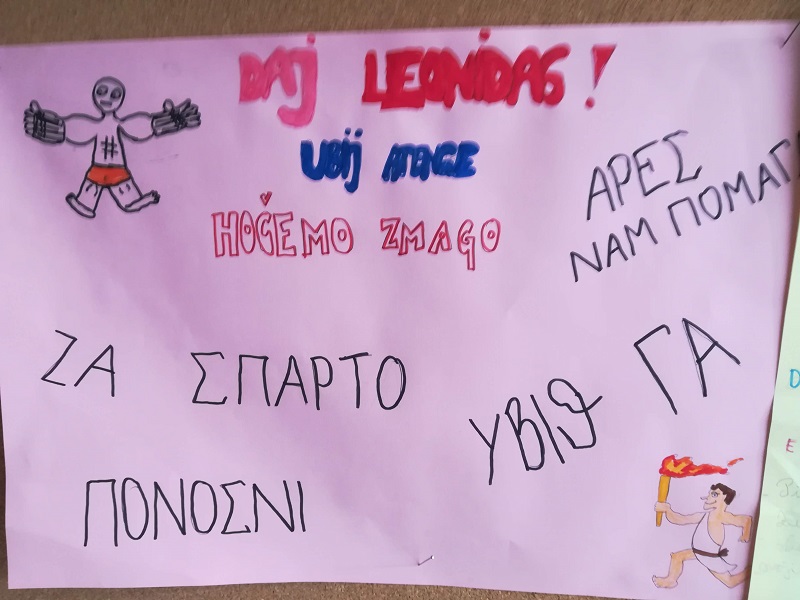 DAJ LEONIDAS!
UBIJ ATENCE
HOČEMO ZMAGO
ΑΡΕΣ
ΝΑΜ ΠΟΜΑΓ
ΖΑ ΣΠΑΡΤΟ
ΥΒΙϑ ΓΑ
ΠΟΝΟΣΝΙ